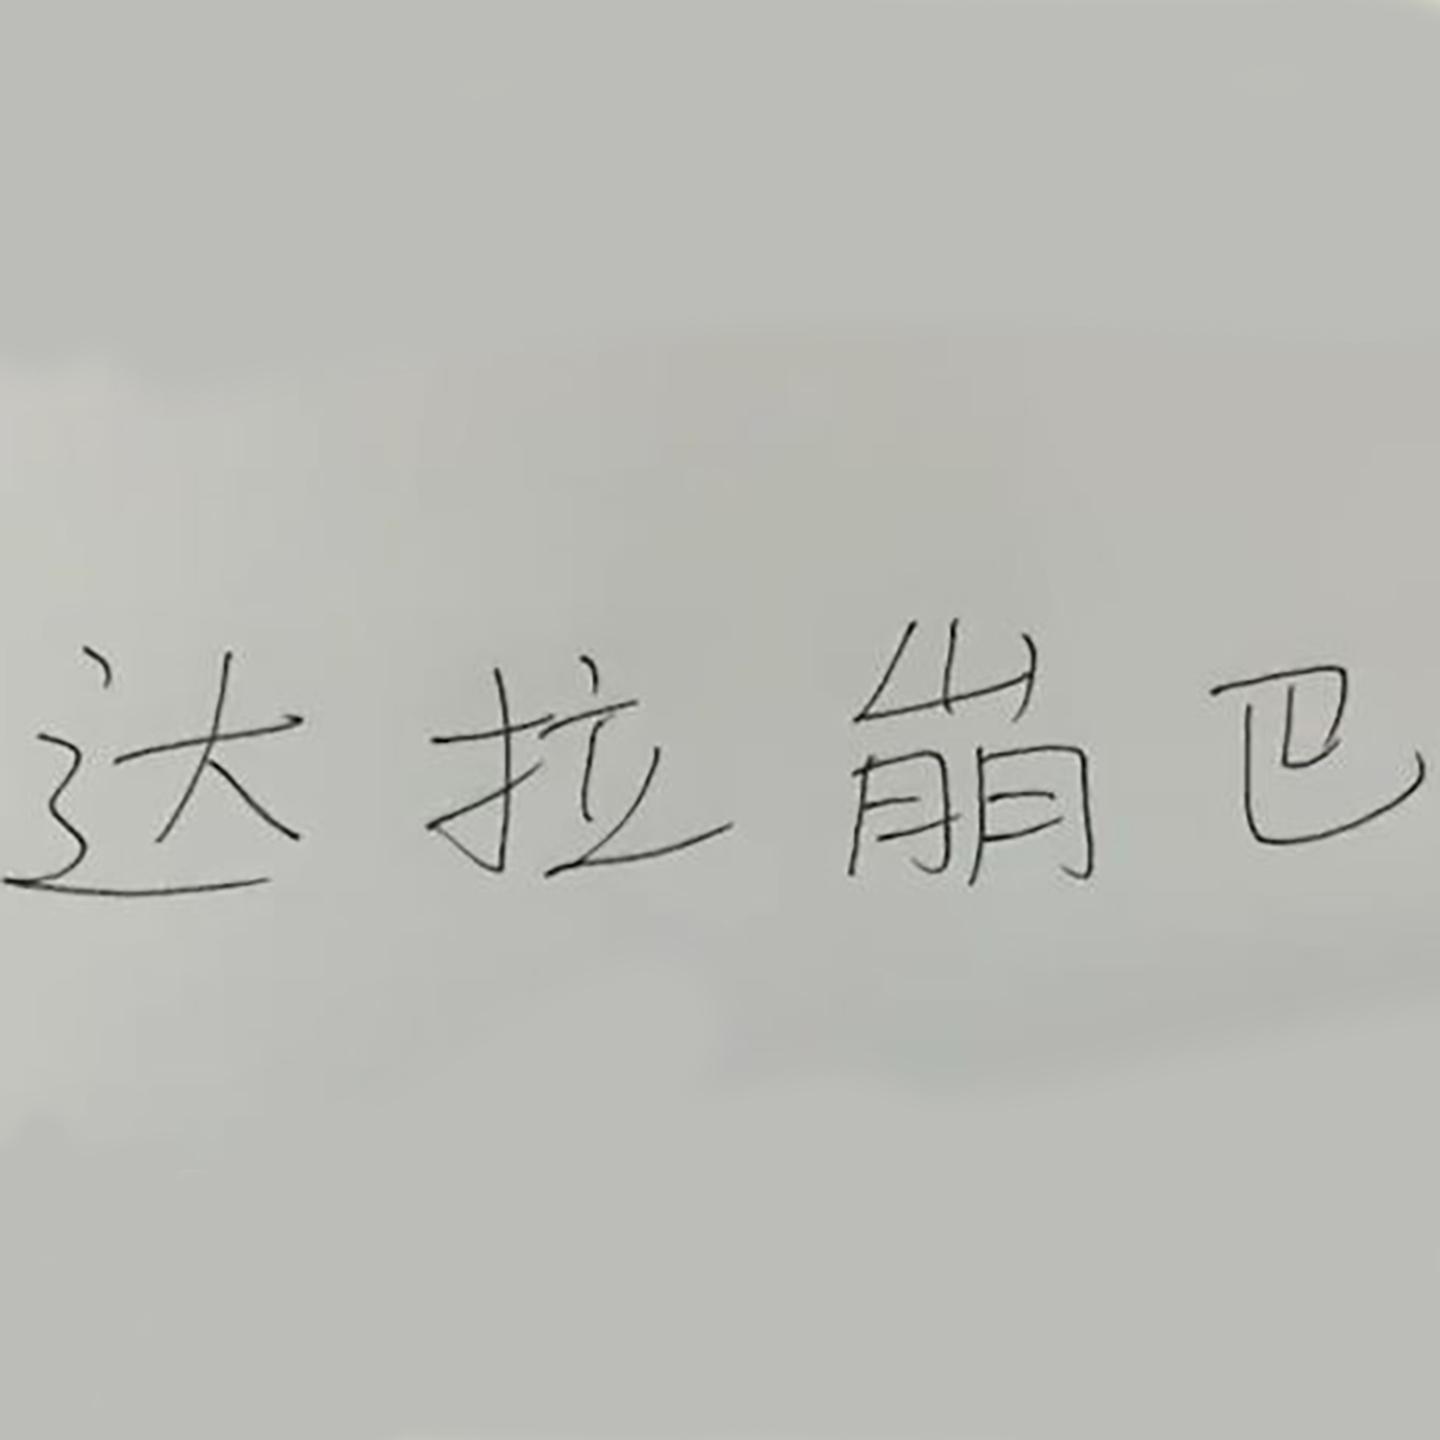 达拉崩巴